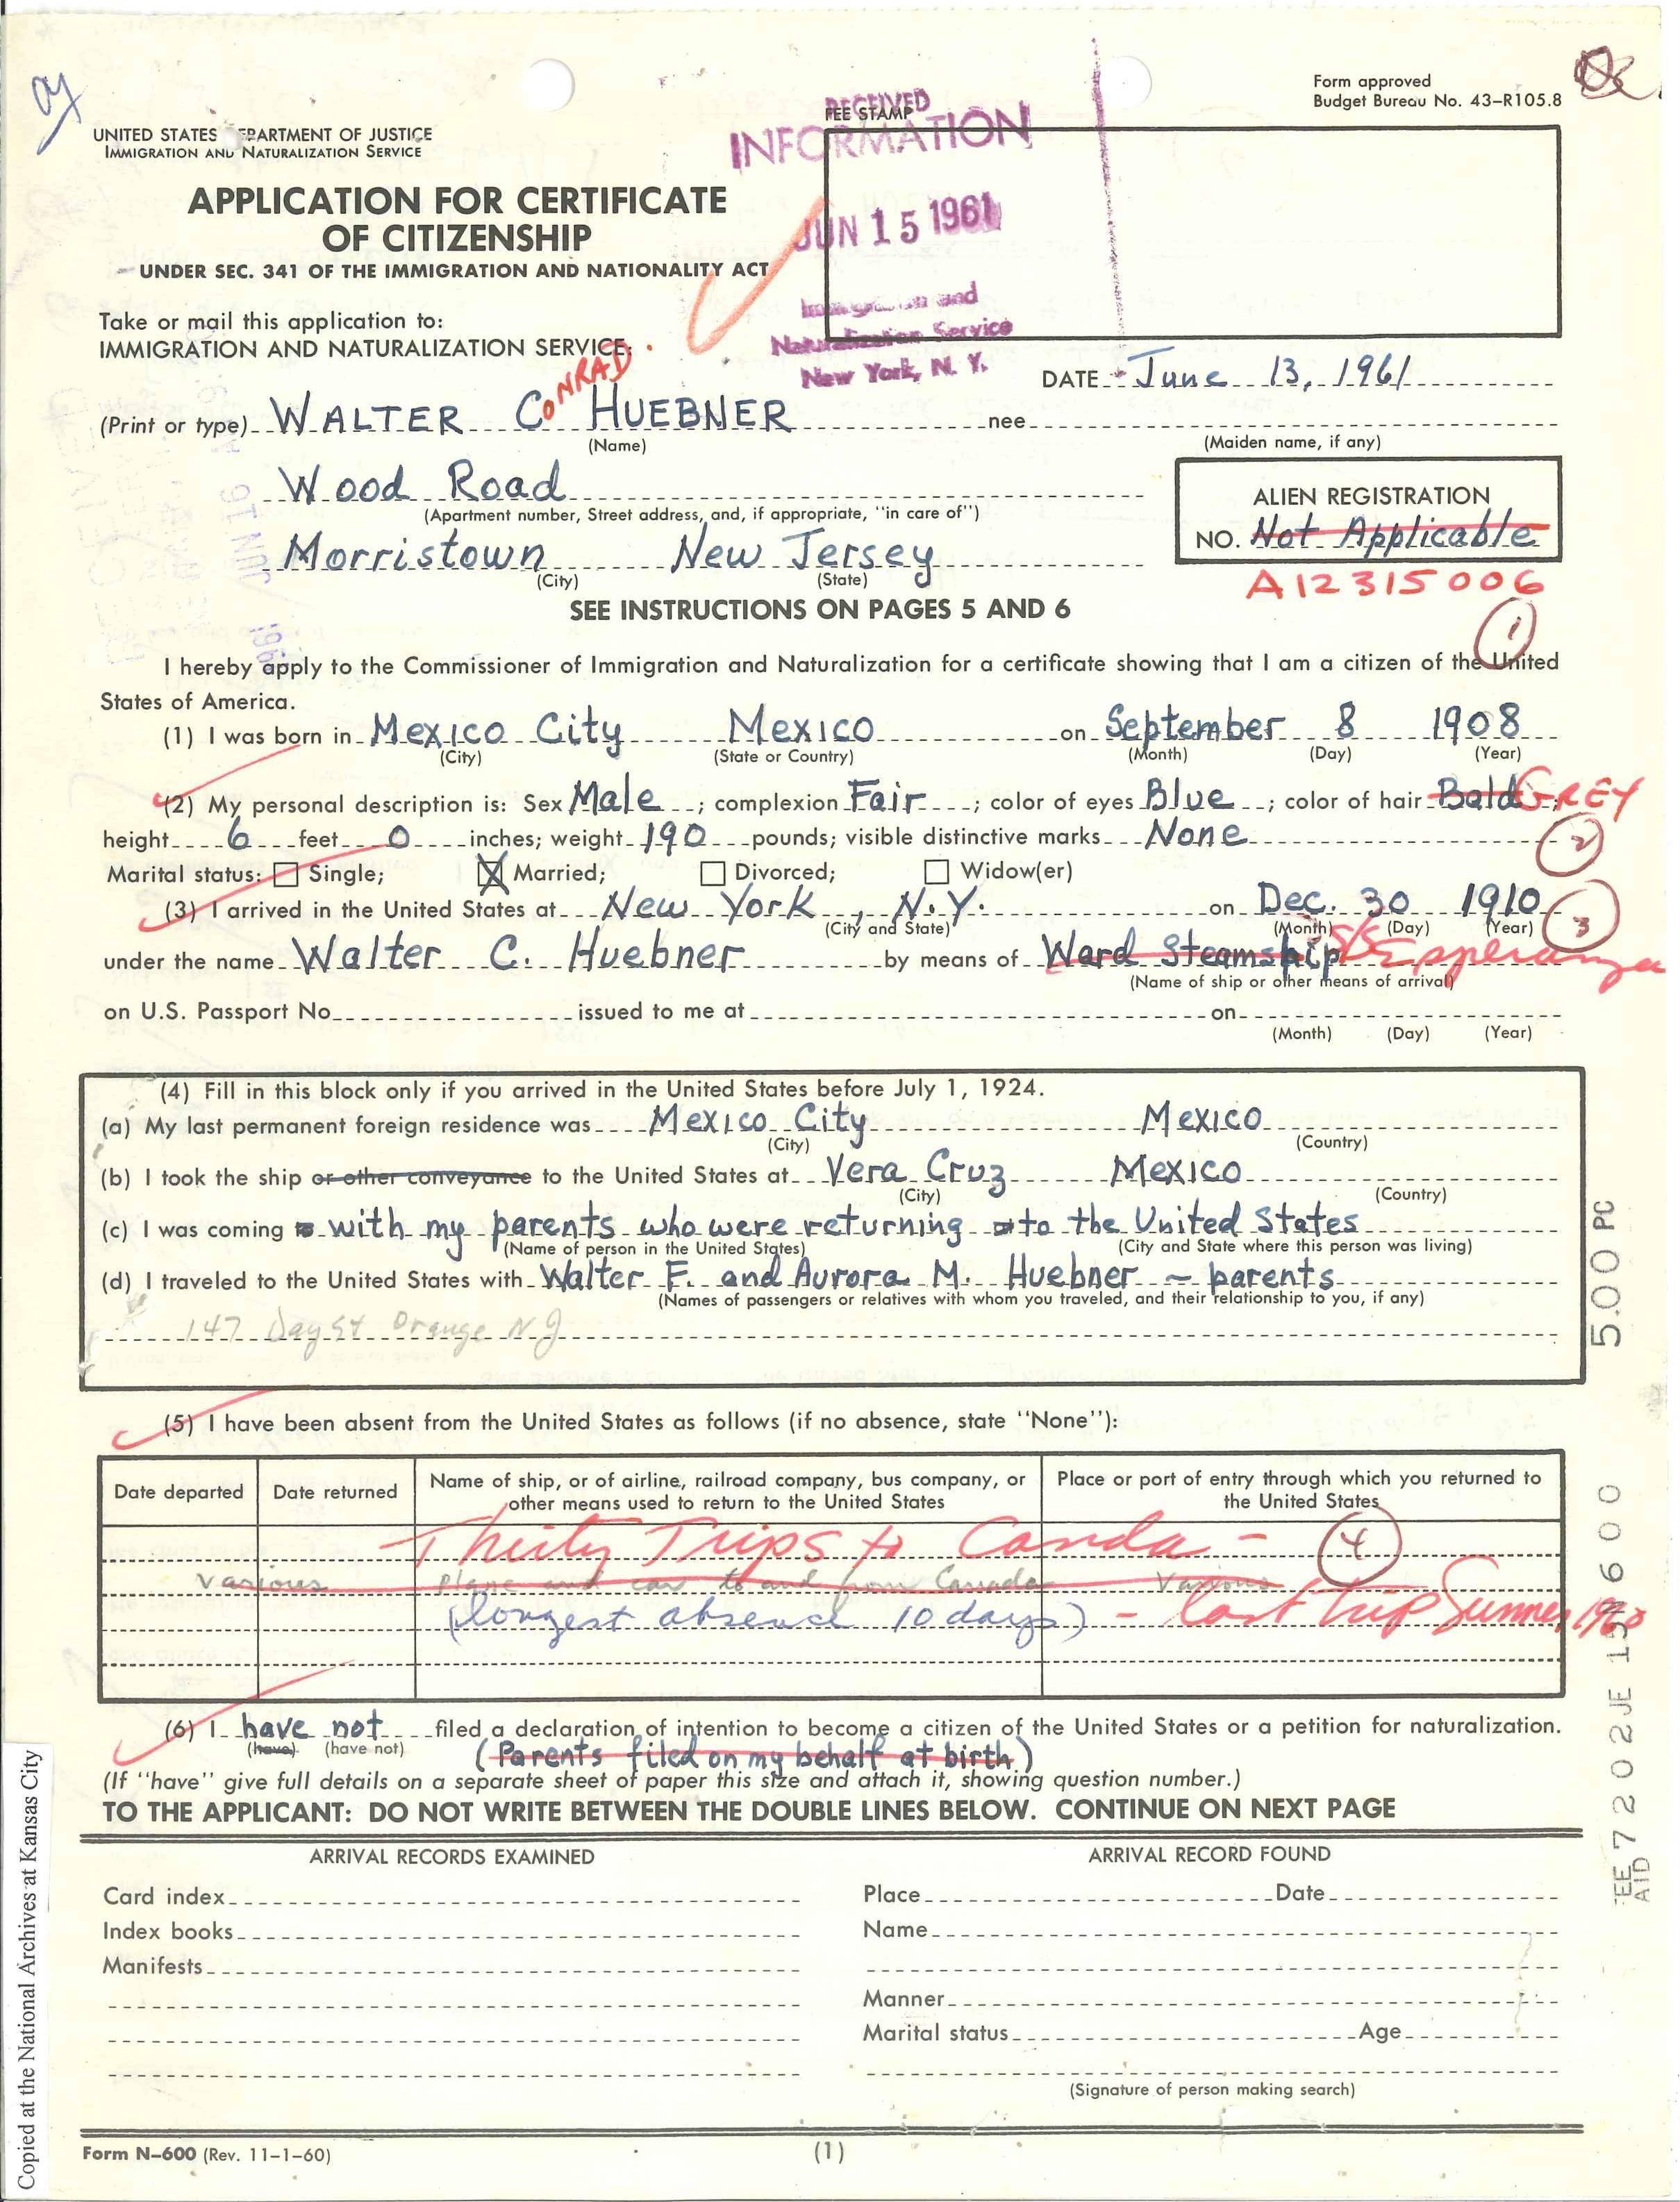 Form approved
Budget Bureau No. 43-R105.8
UNITED STATES DEPARTMENT OF JUSTICE
IMMIGRATION AND NATURALIZATION SERVICE
RECEIVED
FEE STAMP
INFORMATION
JUN 15 1961
Immigration and
Naturalization Service
New York, N. Y.
APPLICATION FOR CERTIFICATE
OF CITIZENSHIP
UNDER SEC. 341 OF THE IMMIGRATION AND NATIONALITY ACT
Take or mail this application to:
IMMIGRATION AND NATURALIZATION SERVICE:
DATE June 13, 1961
(Print or type) WALTER CONRAD HUEBNER nee
(Name) (Maiden name, if any)
Wood Road
(Apartment number, Street address, and, if appropriate, "in care of")
Morristown New Jersey
(City) (State)
ALIEN REGISTRATION
NO. Not Applicable
A12315006
SEE INSTRUCTIONS ON PAGES 5 AND 6
1
I hereby apply to the Commissioner of Immigration and Naturalization for a certificate showing that I am a citizen of the United
States of America.
(1) I was born in Mexico City Mexico on September 8 1908
(City) (State or Country) (Month) (Day) (Year)
(2) My personal description is: Sex Male; complexion Fair; color of eyes Blue; color of hair Bald GREY;
height 6 feet 0 inches; weight 190 pounds; visible distinctive marks None
2
Marital status: Single; X Married; Divorced; Widow(er)
(3) I arrived in the United States at New York, N.Y. on Dec. 30 1910
3
(City and State) (Month) (Day) (Year)
under the name Walter C. Huebner by means of Ward Steamship S/S Esperanza
(Name of ship or other means of arrival)
on U.S. Passport No. issued to me at on
(Month) (Day) (Year)
(4) Fill in this block only if you arrived in the United States before July 1, 1924.
(a) My last permanent foreign residence was Mexico City Mexico
(City) (Country)
(b) I took the ship or other conveyance to the United States at Vera Cruz Mexico
(City) (Country)
(c) I was coming to with my parents who were returning to the United States
(Name of person in the United States) (City and State where this person was living)
(d) I traveled to the United States with Walter F. and Aurora M. Huebner - parents
(Names of passengers or relatives with whom you traveled, and their relationship to you, if any)
147 Day St Orange NJ
5.00 PC
(5) I have been absent from the United States as follows (if no absence, state "None"):
Date departed Date returned Name of ship, or of airline, railroad company, bus company, or other means used to return to the United States Place or port of entry through which you returned to the United States
Thirty Trips to Canda - 4
Various Plane and car to and from Canada Various
(longest absence 10 days) - last trip Summer 1960
(6) I have not filed a declaration of intention to become a citizen of the United States or a petition for naturalization.
(have) (have not)
(Parents filed on my behalf at birth)
(If "have" give full details on a separate sheet of paper this size and attach it, showing question number.)
TO THE APPLICANT: DO NOT WRITE BETWEEN THE DOUBLE LINES BELOW. CONTINUE ON NEXT PAGE
ARRIVAL RECORDS EXAMINED ARRIVAL RECORD FOUND
Card index Place Date
Index books Name
Manifests
Manner
Marital status Age
(Signature of person making search)
Form N-600 (Rev. 11-1-60) (1)
Copied at the National Archives at Kansas City